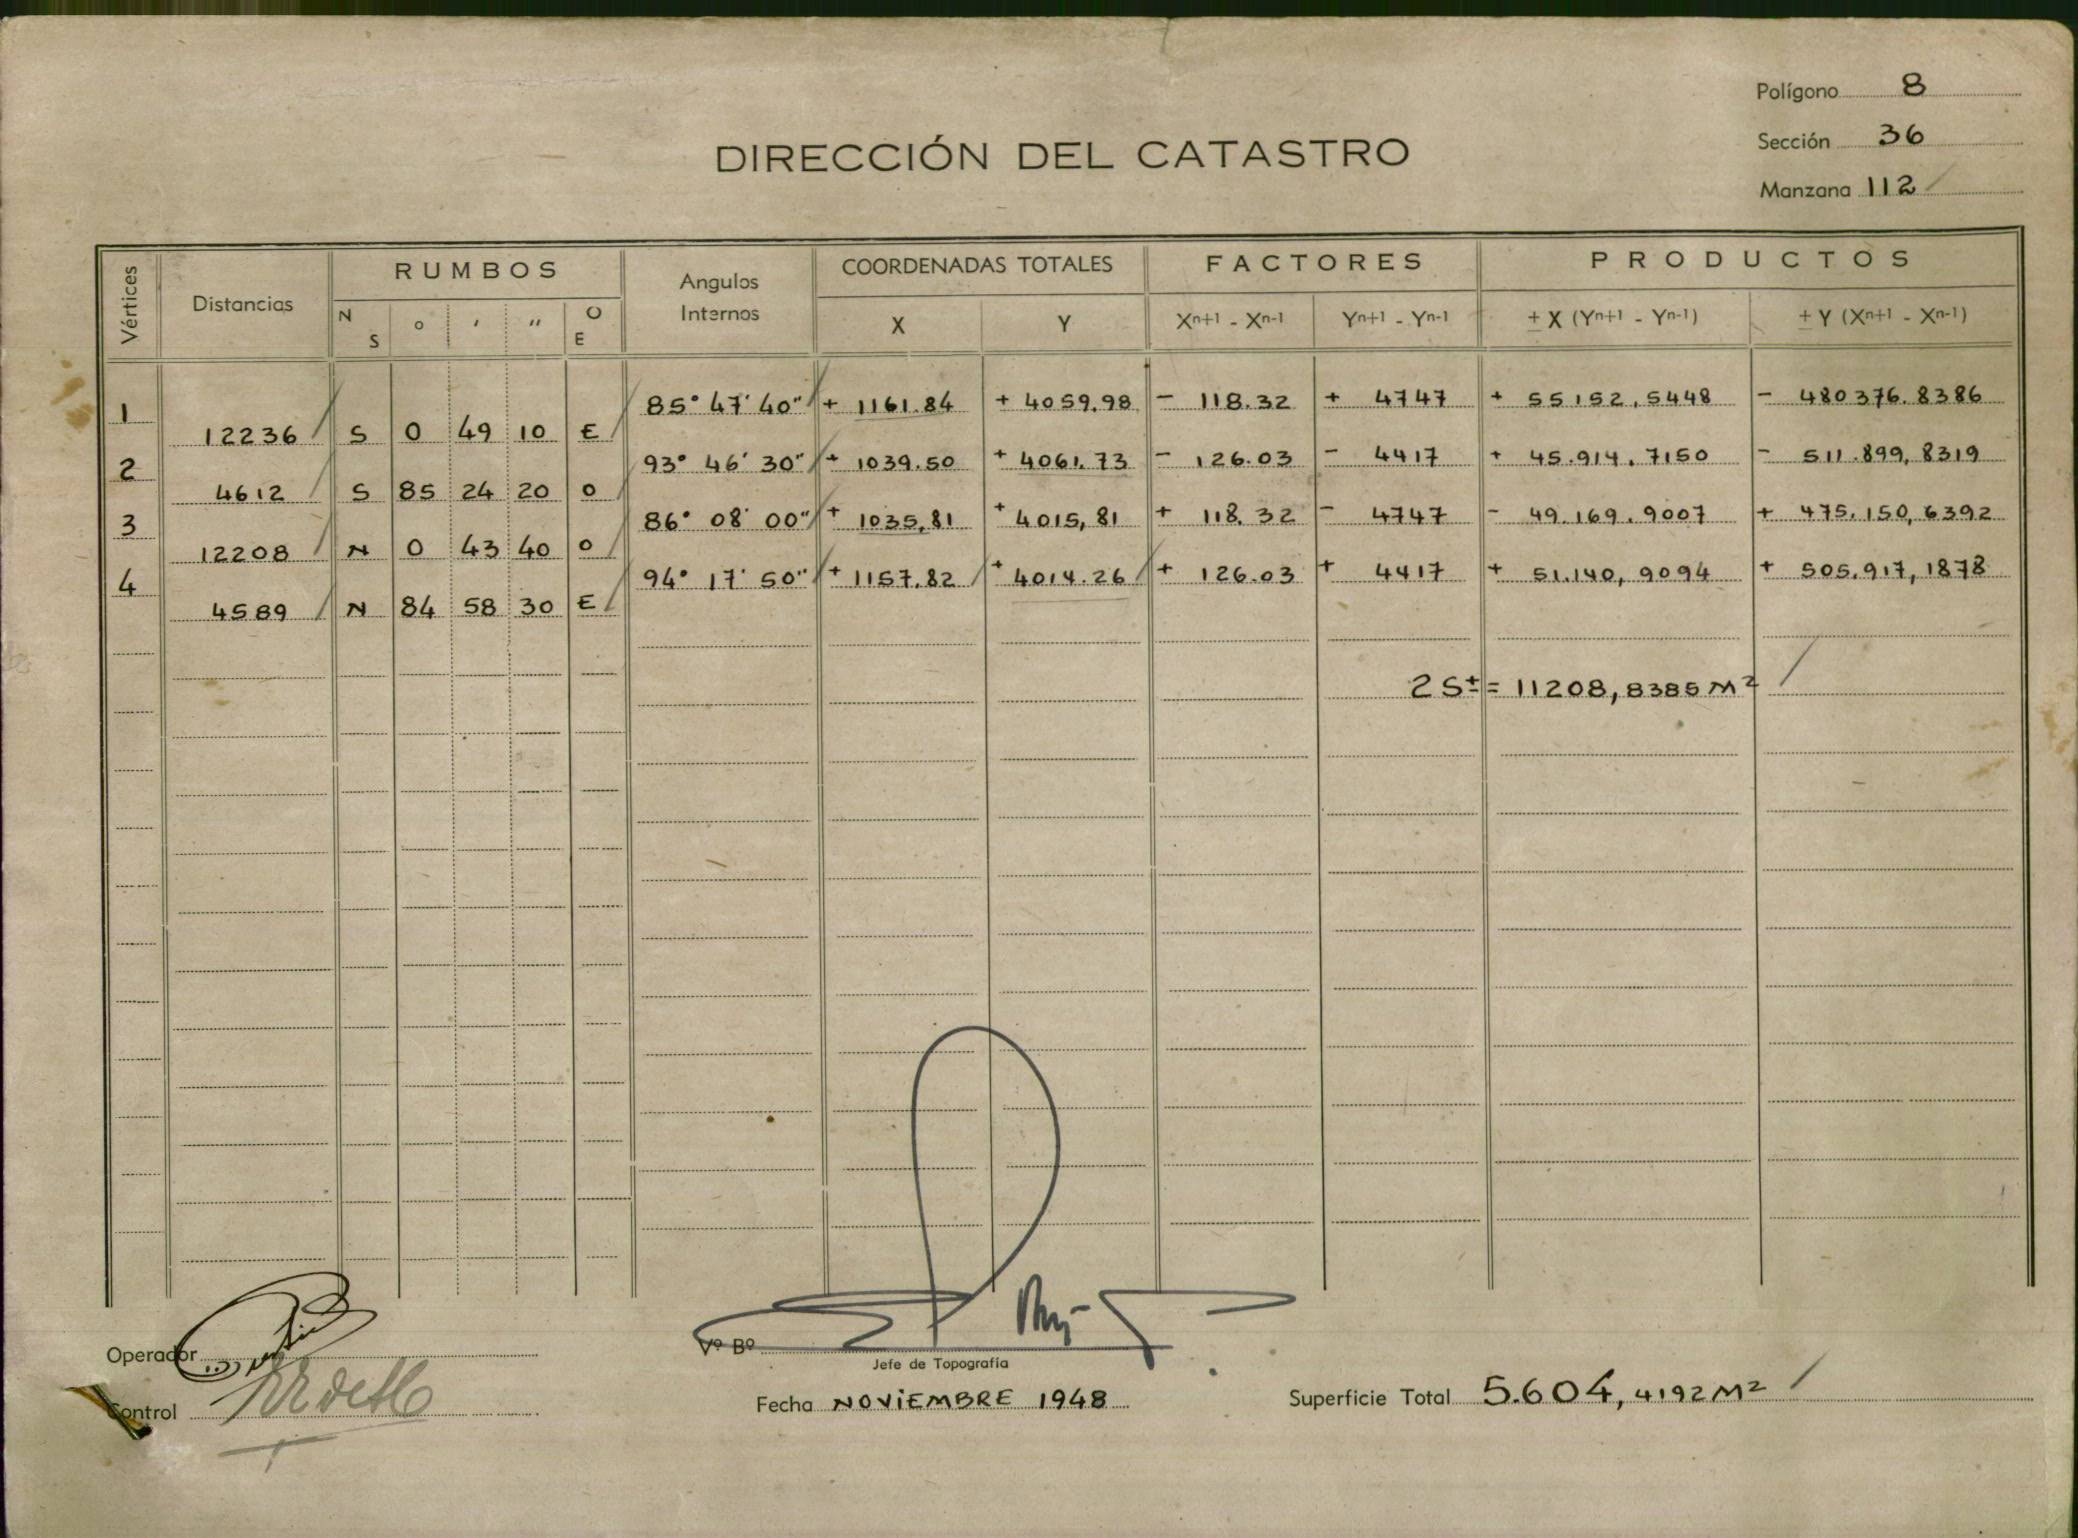 Polígono 8
DIRECCIÓN DEL CATASTRO
Sección 36
Manzana 112
Vértices Distancias RUMBOS Angulos Internos COORDENADAS TOTALES FACTORES PRODUCTOS
N S o ' '' O E X Y Xn+1 - Xn-1 Yn+1 - Yn-1 ± X (Yn+1 - Yn-1) ± Y (Xn+1 - Xn-1)
1 85° 47' 40" + 1161.84 + 4059.98 - 118.32 + 4747 + 55152,5448 - 480376.8386
12236 S 0 49 10 E
2 93° 46' 30" + 1039.50 + 4061.73 - 126.03 - 4417 + 45.914.7150 - 511.899,8319
4612 S 85 24 20 O
3 86° 08' 00" + 1035,81 + 4015,81 + 118.32 - 4747 - 49.169.9007 + 475.150,6392
12208 N 0 43 40 O
4 94° 17' 50" + 1157.82 + 4014.26 + 126.03 + 4417 + 51.140,9094 + 505.917,1878
4589 N 84 58 30 E
2 S± = 11208,8385 M²
Operador
Vº Bº
Jefe de Topografía
Control
Fecha NOVIEMBRE 1948
Superficie Total 5.604,4192 M²